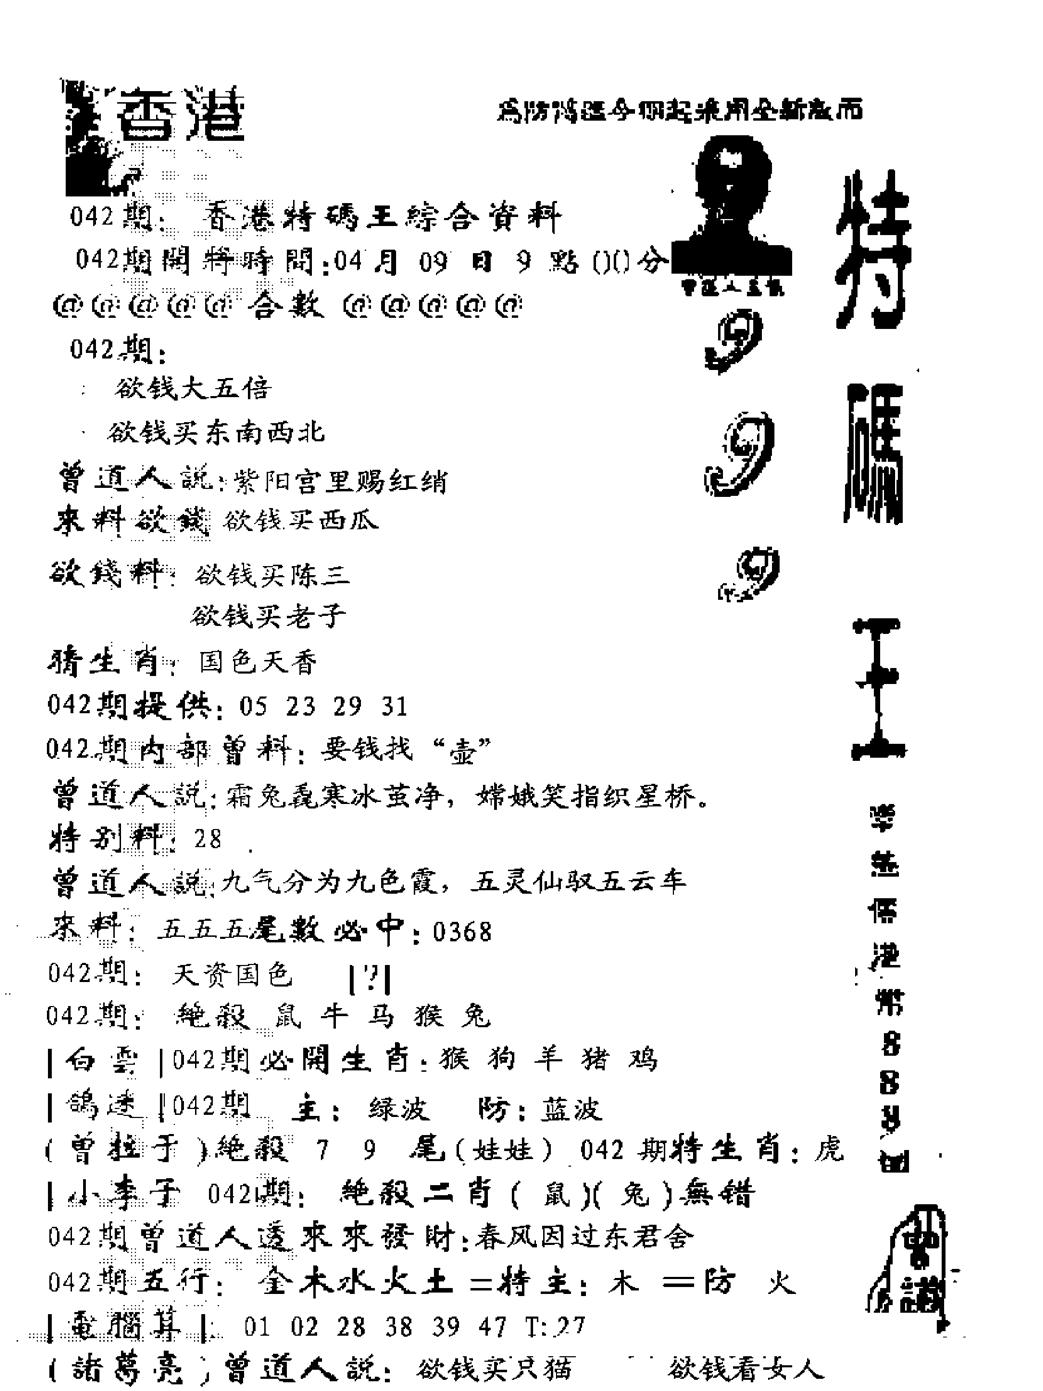 香港
042期: 香港特碼王綜合資料
042期開將時間:04月 09 日 9 點()()分
@@@@@ 合數 @@@@@
042期:
欲钱大五倍
欲钱买东南西北
曾道人説:紫阳宫里赐红绡
來料欲錢 欲钱买西瓜
欲錢料: 欲钱买陈三
欲钱买老子
猜生肖: 国色天香
042期提供: 05 23 29 31
042期内部曾料: 要钱找“壶”
曾道人説:霜兔毳寒冰茧净，嫦娥笑指织星桥。
特别料: 28
曾道人説:九气分为九色霞，五灵仙驭五云车
來料: 五五五尾數必中:0368
042期: 天资国色 |?|
042期: 絶殺 鼠 牛 马 猴 兔
|白雲|042期必開生肖:猴 狗 羊 猪 鸡
|鴿迷|042期 主: 绿波 防: 蓝波
(曾拉于)絶殺 7 9 尾(娃娃) 042期特生肖: 虎
|小李子 042期: 絶殺二肖( 鼠 )( 兔 )無错
042期曾道人透來來發財:春风因过东君舍
042期五行: 金木水火土=特主: 木 =防 火
|電腦算|: 01 02 28 38 39 47 T:27
(諸葛亮)曾道人説: 欲钱买只猫 欲钱看女人
9
9
9
特碼王
港幣888